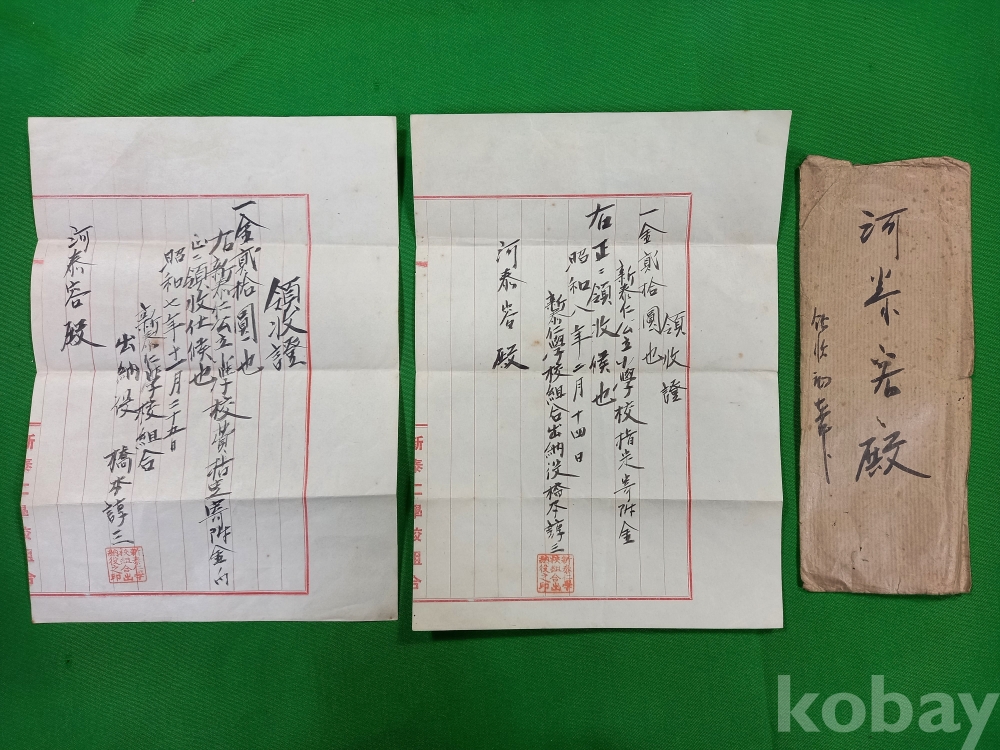 領收證
一金貳拾圓也
右新泰仁公立小學校費指定寄附金向
正ニ領收仕候也
昭和七年十一月二十五日
新泰仁學校組合
出納役 橋本諄三
河泰容殿
新泰仁學校組合
新泰仁學校組合出納役之印
領收證
一金貳拾圓也
新泰仁公立小學校指定寄附金
右正ニ領收候也
昭和八年二月十四日
新泰仁學校組合出納役橋本諄三
河泰容殿
新泰仁學校組合出納役之印
河泰容殿
kobay